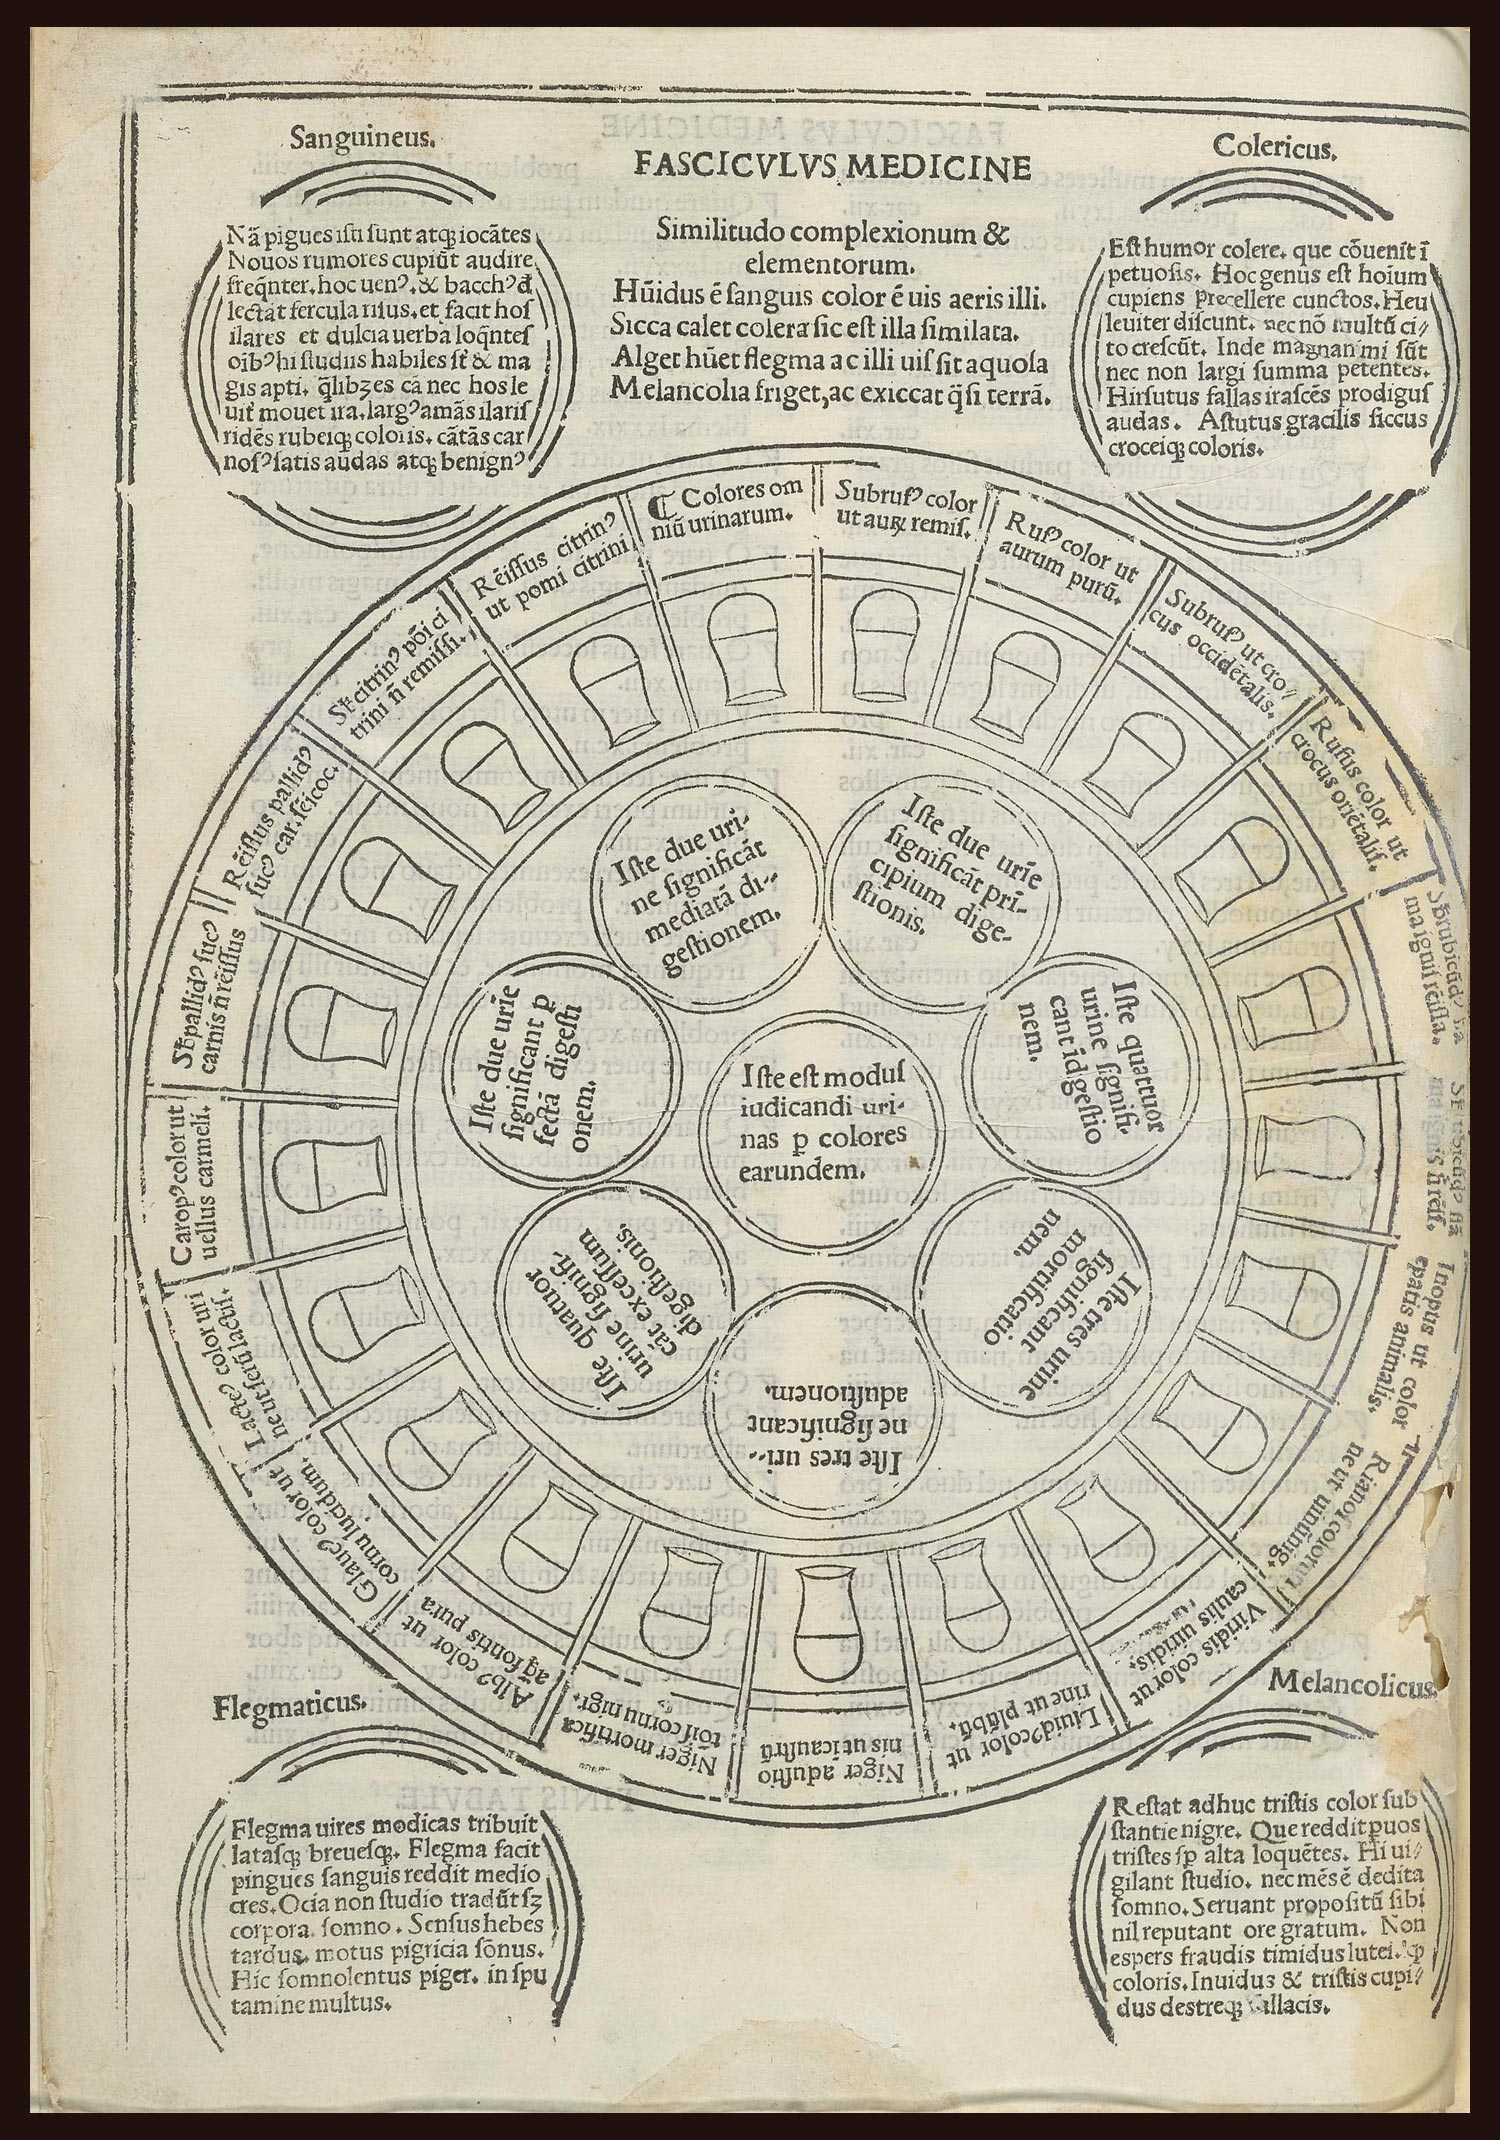 Sanguineus.
FASCICVLVS MEDICINE
Colericus.
Nã pigues isti sunt atq̧ iocãtes
Nouos rumores cupiũt audire
freq̃nter. hoc uenꝰ. & bacchꝰ đ
lectãt fercula risus. et facit hoſ
ilares et dulcia uerba loq̃nteſ
oĩbꝰ hi studiis habiles st̃ & ma
gis apti. q̃libꝫes cã nec hos le
uit̃ mouet ira. largꝰ amãs ilariſ
ridẽs rubeiq̧ coloris. cãtãs car
noſꝰ satis audas atq̧ benignꝰ
Similitudo complexionum &
elementorum.
Hũidus ẽ sanguis color ẽ uis aeris illi.
Sicca calet colera sic est illa similata.
Alget hũet flegma ac illi uiſ sit aquosa
Melancolia friget, ac exiccat q̃si terrã.
Est humor colere. que cõuenit ĩ
petuosis. Hoc genus est hoĩum
cupiens precellere cunctos. Heu
leuiter discunt. nec nõ multũ ci//
to crescũt. Inde magnanimi sũt
nec non largi summa petentes.
Hirsutus fallas irascẽs prodiguſ
audas. Astutus gracilis siccus
croceiq̧ coloris.
¶ Colores om
niũ urinarum.
Subrufꝰ color
ut auꝝ remiſ.
Rufꝰ color ut
aurum purũ.
Subrufꝰ ut cro//
cus occidẽtalis.
Rufus color ut
crocus oriẽtaliſ.
ma igniſ rẽissa.
Inopus ut color
epatis animalis.
Rianoſ color uri
ne ut
Viridis color ut
caulis uiridis.
Liuidꝰ color ut
rine ut plũbũ.
Niger adustio
nis ut ĩcaustrũ
Niger mortifica
tõiſ cornu nigr.
Albꝰ color ut
aq̃ fontis pura
Glaucꝰ color ut
cornu lucidum.
Lacteꝰ color uri
ne ut
Caropꝰ color ut
uellus carmeli.
pallidꝰ sucꝰ
carnis ñ rẽissus
Rẽissus pallidꝰ
sucꝰ car.
citrinꝰ põi ci
trini ñ remissi.
Rẽissus citrinꝰ
ut pomi citrini
Iste due uri-
ne significãt
mediatã di-
gestionem.
Iste due urĩe
significãt prĩ-
cipium dige-
stionis.
Iste quattuor
urine signifi-
cant ĩdigestio
nem.
Iste tres urine
significant
mortificatio
nem.
Iste tres uri-
ne significant
adustionem.
Iste quatuor
urine signifi-
cãt excessum
digestionis.
Iste due urĩe
significant ꝑ
fectã digesti
onem.
Iste est moduſ
iudicandi uri-
nas ꝑ colores
earundem.
Flegmaticus.
Melancolicus.
Flegma uires modicas tribuit
latasq̧ breuesq̧. Flegma facit
pingues sanguis reddit medio
cres. Ocia non studio tradũt sꝫ
corpora. somno. Sensus hebes
tardus. motus pigricia sõnus.
Hic somnolentus piger. in spu
tamine multus.
Restat adhuc tristis color sub
stantie nigre. Que reddit puos
tristes sꝑ alta loquẽtes. Hi ui//
gilant studio. nec mẽs ẽ dedita
somno. Seruant propositũ sibi
nil reputant ore gratum. Non
espers fraudis timidus lutei.
coloris. Inuidus & tristis cupi//
dus destreq̧